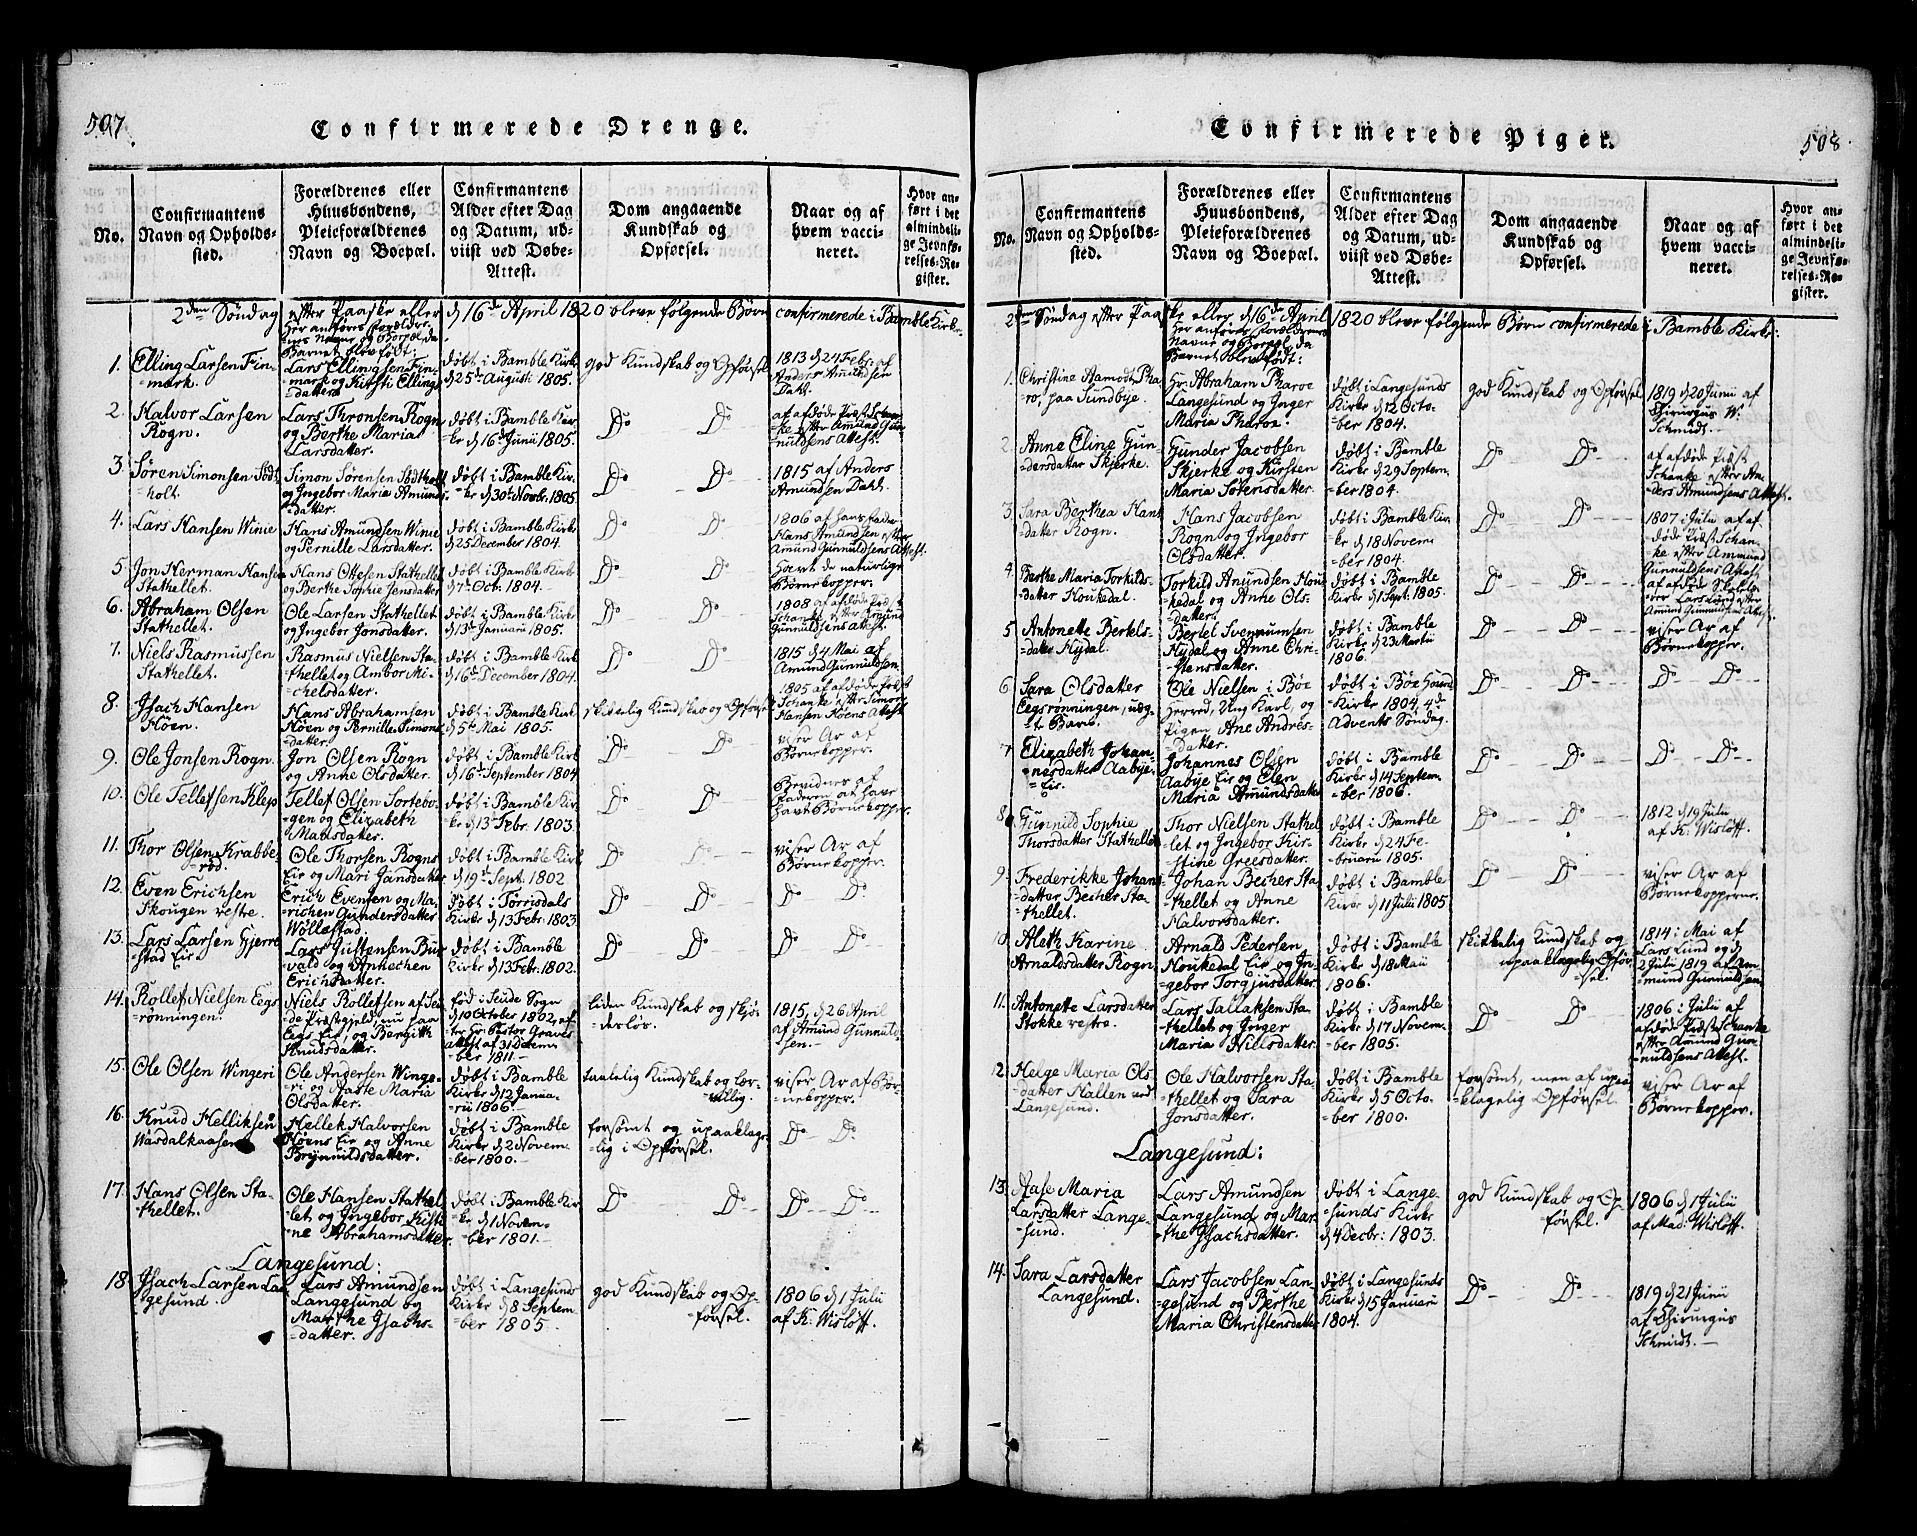 597.
Confirmerede Drenge.
No.
Confirmantens
Navn og Opholds-
sted.
Forældrenes eller
Huusbondens,
Pleieforældrenes
Navn og Boepæl.
Confirmantens
Alder efter Dag
og Datum, ud-
viist ved Døbe-
Attest.
Dom angaaende
Kundskab og
Opførsel.
Naar og af
hvem vacci-
neret.
Hvor an-
ført i det
almindeli-
ge Jevnfø-
relses-Re-
gister.
2den Søndag efter Paaske eller d 16de April 1820 bleve følgende Børn confirmerede i Bamble Kirke.
her anføres Forældre-
nes Navne og Boepæl da
Barnet blev født:
1. Elling Larsen Fin-
mark.
Lars Ellingsen Fin-
mark og Kirsti Ellings-
datter
døbt i Bamble Kirk
d 25de Augusti 1805.
god Kundskab og Opførsel
1813 d 24 Febr. af
Anders Amundsen
Dahl.
2. Halvor Larsen
Rogn.
Lars Thronsen Rogn
og Berthe Maria
Larsdatter.
døbt i Bamble Kir-
ke d 16de Junii 1805.
Do — Do
af afdøde Præst Schan-
ke efter Amund Gun-
nuldsens Attest.
3. Søren Simonsen Sødt-
holt.
Simon Sørensen Sødtholt
og Ingebor Maria Amunds-
datter.
døbt i Bamble Kir-
ke d 30te Novbr. 1805
Do — Do
1815 af Anders
Amundsen Dahl.
4. Lars Hansen Winie
Hans Amundsen Winie
og Pernille Larsdatter.
døbt i Bamble Kirk
d 25 December 1804.
Do Do
1806 af hans Fader
Hans Amundsen efter
Amund Gunnuldsens Attest.
5. Jon Herman Hansen
Stathellet.
Hans Ottesen Stathellet
og Berthe Sophie Jensdatter
døbt i Bamble Kirk
d 7de Oct. 1804.
Do Do
havt de naturlige
Børnekopper.
6. Abraham Olsen
Stathellet.
Ole Larsen Stathellet
og Ingebor Jonsdatter.
døbt i Bamble Kirk
d 13de Januarii 1805.
Do Do
1808 af afdøde Præst
Schanke efter Amund
Gunnuldsens Attest.
7. Niels Rasmussen
Stathellet.
Rasmus Nielsen Sta-
thellet og Ambor Mi-
chelsdatter.
døbt i Bamble Kirk
d 16de December 1804.
Do Do
1815 d 4 Mai af
Amund Gunnuldsen.
8. Isach Hansen
Höen
Hans Abrahamsen
Höen og Pernille Simons-
datter.
døbt i Bamble Kirk
d 5te Mai 1805.
skikkelig Kundskab og Opførsel
1805 af afdøde Præst
Schanke efter Simon
Hansen Höens Attest
9. Ole Jonsen Rogn.
Jon Olsen Rogn
og Anne Olsdatter
døbt i Bamble Kirk
d 16de September 1804
Do Do
viser Ar af
Børnekopper.
10. Ole Tellefsen Klep
Tellef Olsen Sortebo-
gen og Elizabeth
Madsdatter.
døbt i Bamble Kir-
ke d 13de Febr. 1803.
Do Do
Bevidner af
Faderen at have
havt Børnekopper
11. Thor Olsen Krabbe-
röd.
Ole Thorsen Rogns
Eie og Mari Jansdatter
døbt i Bamble Kirk
d 19de Sept. 1802
Do Do
viser Ar af
Børnekopper.
12. Even Erichsen
Skougen vestre.
Erich Evensen og Ma-
richen Gundersdatter
Wøllestad.
døbt i Törrisdals
Kirke d 13 Febr. 1803
Do Do
Do Do
13. Lars Larsen Gjerre-
stad Eie.
Lars Justensen Bur-
vald og Annechen
Erichsdatter.
døbt i Bamble
Kirke d 13 Febr. 1802.
Do Do
Do Do
14. Rollef Nielsen Eegs-
rönningen.
Niels Rollefsen af Seu-
de Præstegjeld, nu paa
Eegs Eie, og Bergith
Knudsdatter.
fød i Seude Sogn
d 10 October 1802, ef-
ter Hr. Pastor Graves
attest af 31 Decem-
ber 1811.
liden Kundskab og skjø-
desløs.
1815, d 26 April
af Amund Gunnuld-
sen.
15. Ole Olsen Wingeri
Ole Andersen Winge-
ri og Aaste Maria
Olsdatter.
døbt i Bamble
Kirke d 12 Janua-
rii 1806.
taalelig Kundskab og lær-
villig.
viser Ar af Bør-
nekopper.
16. Knud Helliksen
Wasdalkaasen
Hellek Halvorsen
Höens Eie og Anne
Brynnildsdatter.
døbt i Bamble
Kirke d 2 Novem-
ber 1800.
forsømt og upaaklage-
lig i Opførsel.
Do Do
17. Hans Olsen Sta-
thellet.
Ole Hansen Stathel-
let og Ingebor Kisti-
ne Abrahamsdatter
døbt i Bamble Kir-
ke d 1 Novem-
ber 1801.
Do Do
Do Do
Langesund:
18. Isach Larsen Lan-
gesund.
Lars Amundsen
Langesund og
Marthe Isachs-
datter.
døbt i Langesunds
Kirke d 8 Septem-
ber 1805.
god Kundskab og Op-
førsel.
1806 d 1 Julii
af K. Wisløff.
508.
Confirmerede Piger.
No.
Confirmantens
Navn og Opholds-
sted.
Forældrenes eller
Huusbondens,
Pleieforældrenes
Navn og Boepæl.
Confirmantens
Alder efter Dag
og Datum, ud-
viist ved Døbe-
Attest.
Dom angaaende
Kundskab og
Opførsel.
Naar og af
hvem vacci-
neret.
Hvor an-
ført i det
almindeli-
ge Jevnfø-
relses-Re-
gister.
2den Søndag efter Paaske eller d 16de April 1820 bleve følgende Børn confirmerede i Bamble Kirke:
her anføres Forældrenes
Navne og Boepæl da
Barnet blev født:
1. Christine Aamodt Pha-
roe, paa Sundbye.
Hr. Abraham Pharoe
Langesund og Inger
Maria Pharoe.
døbt i Langesunds
Kirke d 12 Octo-
ber 1804.
god Kundskab og Opførsel
1819 d 20 Junii af
Chirurgus W.
Schmidt.
2. Anne Eline Gun-
dersdatter Skjerke.
Gunder Jacobsen
Skjerke og Kirsten
Maria Sörensdatter.
døbt i Bamble
Kirke d 29 Septem-
ber 1804.
Do Do
af afdøde Præst
Schanke efter An-
ders Amundsens Attest.
3. Sara Berthea Hans-
datter Rogn.
Hans Jacobsen
Rogn og Ingebor
Olsdatter.
døbt i Bamble Kir-
ke d 18 Novem-
ber 1804.
Do Do
1807 i Julii af af-
døde Præst Schan-
ke efter Ammund
Gunnuldsens Attest
4. Berthe Maria Torkilds-
datter Houkedal.
Torkild Anundsen Hou-
kedal og Anne Ols-
datter.
døbt i Bamble
Kirke d 1 Sept: 1805.
Do Do
af afdøde Skolele-
rer Lars Lund efter
Amund Gunnuldsens Attest.
5. Antonette Bertels-
datter Hydal.
Bertel Svennumsen
Hydal og Anne Chri-
stensdatter.
døbt i Bamble
Kirke d 23 Martii
1806.
Do Do
viser Ar af
Børnekopper.
6. Sara Olsdatter
Eegsrønningen, uæg-
te Barn.
Ole Nielsen i Böe
Herred, Ung Karl, og
Pigen Ane Andres-
datter.
døbt i Böe Hoved-
Kirke 1804, 4de
Advents Søndag.
Do Do
Do Do
7. Elizabeth Johan-
nesdatter Aabye-
Eie.
Johannes Olsen
Aabye Eie og Elen
Maria Amundsdatter
døbt i Bamble
Kirke d 14 Septem-
ber 1806.
Do Do
Do Do
8. Gunnild Sophie
Thorsdatter Stathellet
Thor Nielsen Stathel-
let og Ingebor Kir-
stine Greesdatter.
døbt i Bamble
Kirke d 24 Fe-
bruarii 1805.
Do Do
1812 d 19 Julii
af K. Wisløff.
9. Frederikke Johans-
datter Becher Sta-
thellet.
Johan Becher Sta-
thellet og Anne
Halvorsdatter.
døbt i Bamble
Kirke d 11 Julii 1805
Do Do
viser Ar af
Børnekopperne.
10. Aleth Karine
Arnaldsdatter Rogn
Arnald Pedersen
Houkedal Eie og In-
gebor Torgjusdatter.
døbt i Bamble
Kirke d 18 Maii
1806.
skikkelig Kundskab og
upaaklagelig Opfør-
sel.
1814 i Mai af
Lars Lund og d
2 Julii 1819 af Am-
mund Gunnuldsen.
11. Antonette Larsdatter
Stokke vestre.
Lars Tallaksen Sta-
thellet og Inger
Maria Nielsdatter.
døbt i Bamble
Kirke d 17 Novem-
ber 1805.
Do Do
1806 i Julii af
afdøde Præst Schanke
efter Amund Gun-
nuldsens Attest.
12. Helge Maria Ols-
datter Hallen ved
Langesund.
Ole Halvorsen Sta-
thellet og Sara
Jonsdatter.
døbt i Bamble
Kirke d 5 Octo-
ber 1800.
forsømt, men af upaa-
klagelig Opførsel.
viser Ar af
Børnekopper.
Langesund:
13. Aase Maria
Larsdatter Lange-
sund.
Lars Amundsen
Langesund og Mar-
the Isachsdatter.
døbt i Lange-
sunds Kirke
d 4 Decbr: 1803.
god Kundskab og Op-
førsel.
1806 d 1 Julii
af Mad. Wisløff.
14. Sara Larsdatter
Langesund.
Lars Jacobsen Lan-
gesund og Berthe
Maria Christensdatter
døbt i Langesunds
Kirke d 15 Januarii
1804.
Do Do
1819 d 21 Junii
af Chirurgus
Schmidt.